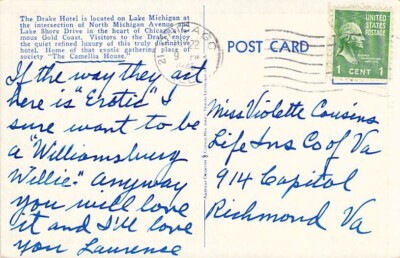 The Drake Hotel is located on Lake Michigan at
the intersection of North Michigan Avenue
Lake Shore Drive in the heart of Chicago's
nous Gold Coast. Visitors to the Drake enjoy
the quiet refined luxury of this truly distinctive
hotel. Home of that exotic gathering place of
society "The Camellia House."
CHICAGO
22
9
POST CARD
UNITED
STATES
POSTAGE
CENT 1
If the way they act
here is "Erotic" I
sure want to be
a "Williamsburg
Willie". Anyway
you will love
it and I'll love
you Laurense
Miss Violette Cousins
Life Ins Co of Va
914 Capitol
Richmond Va